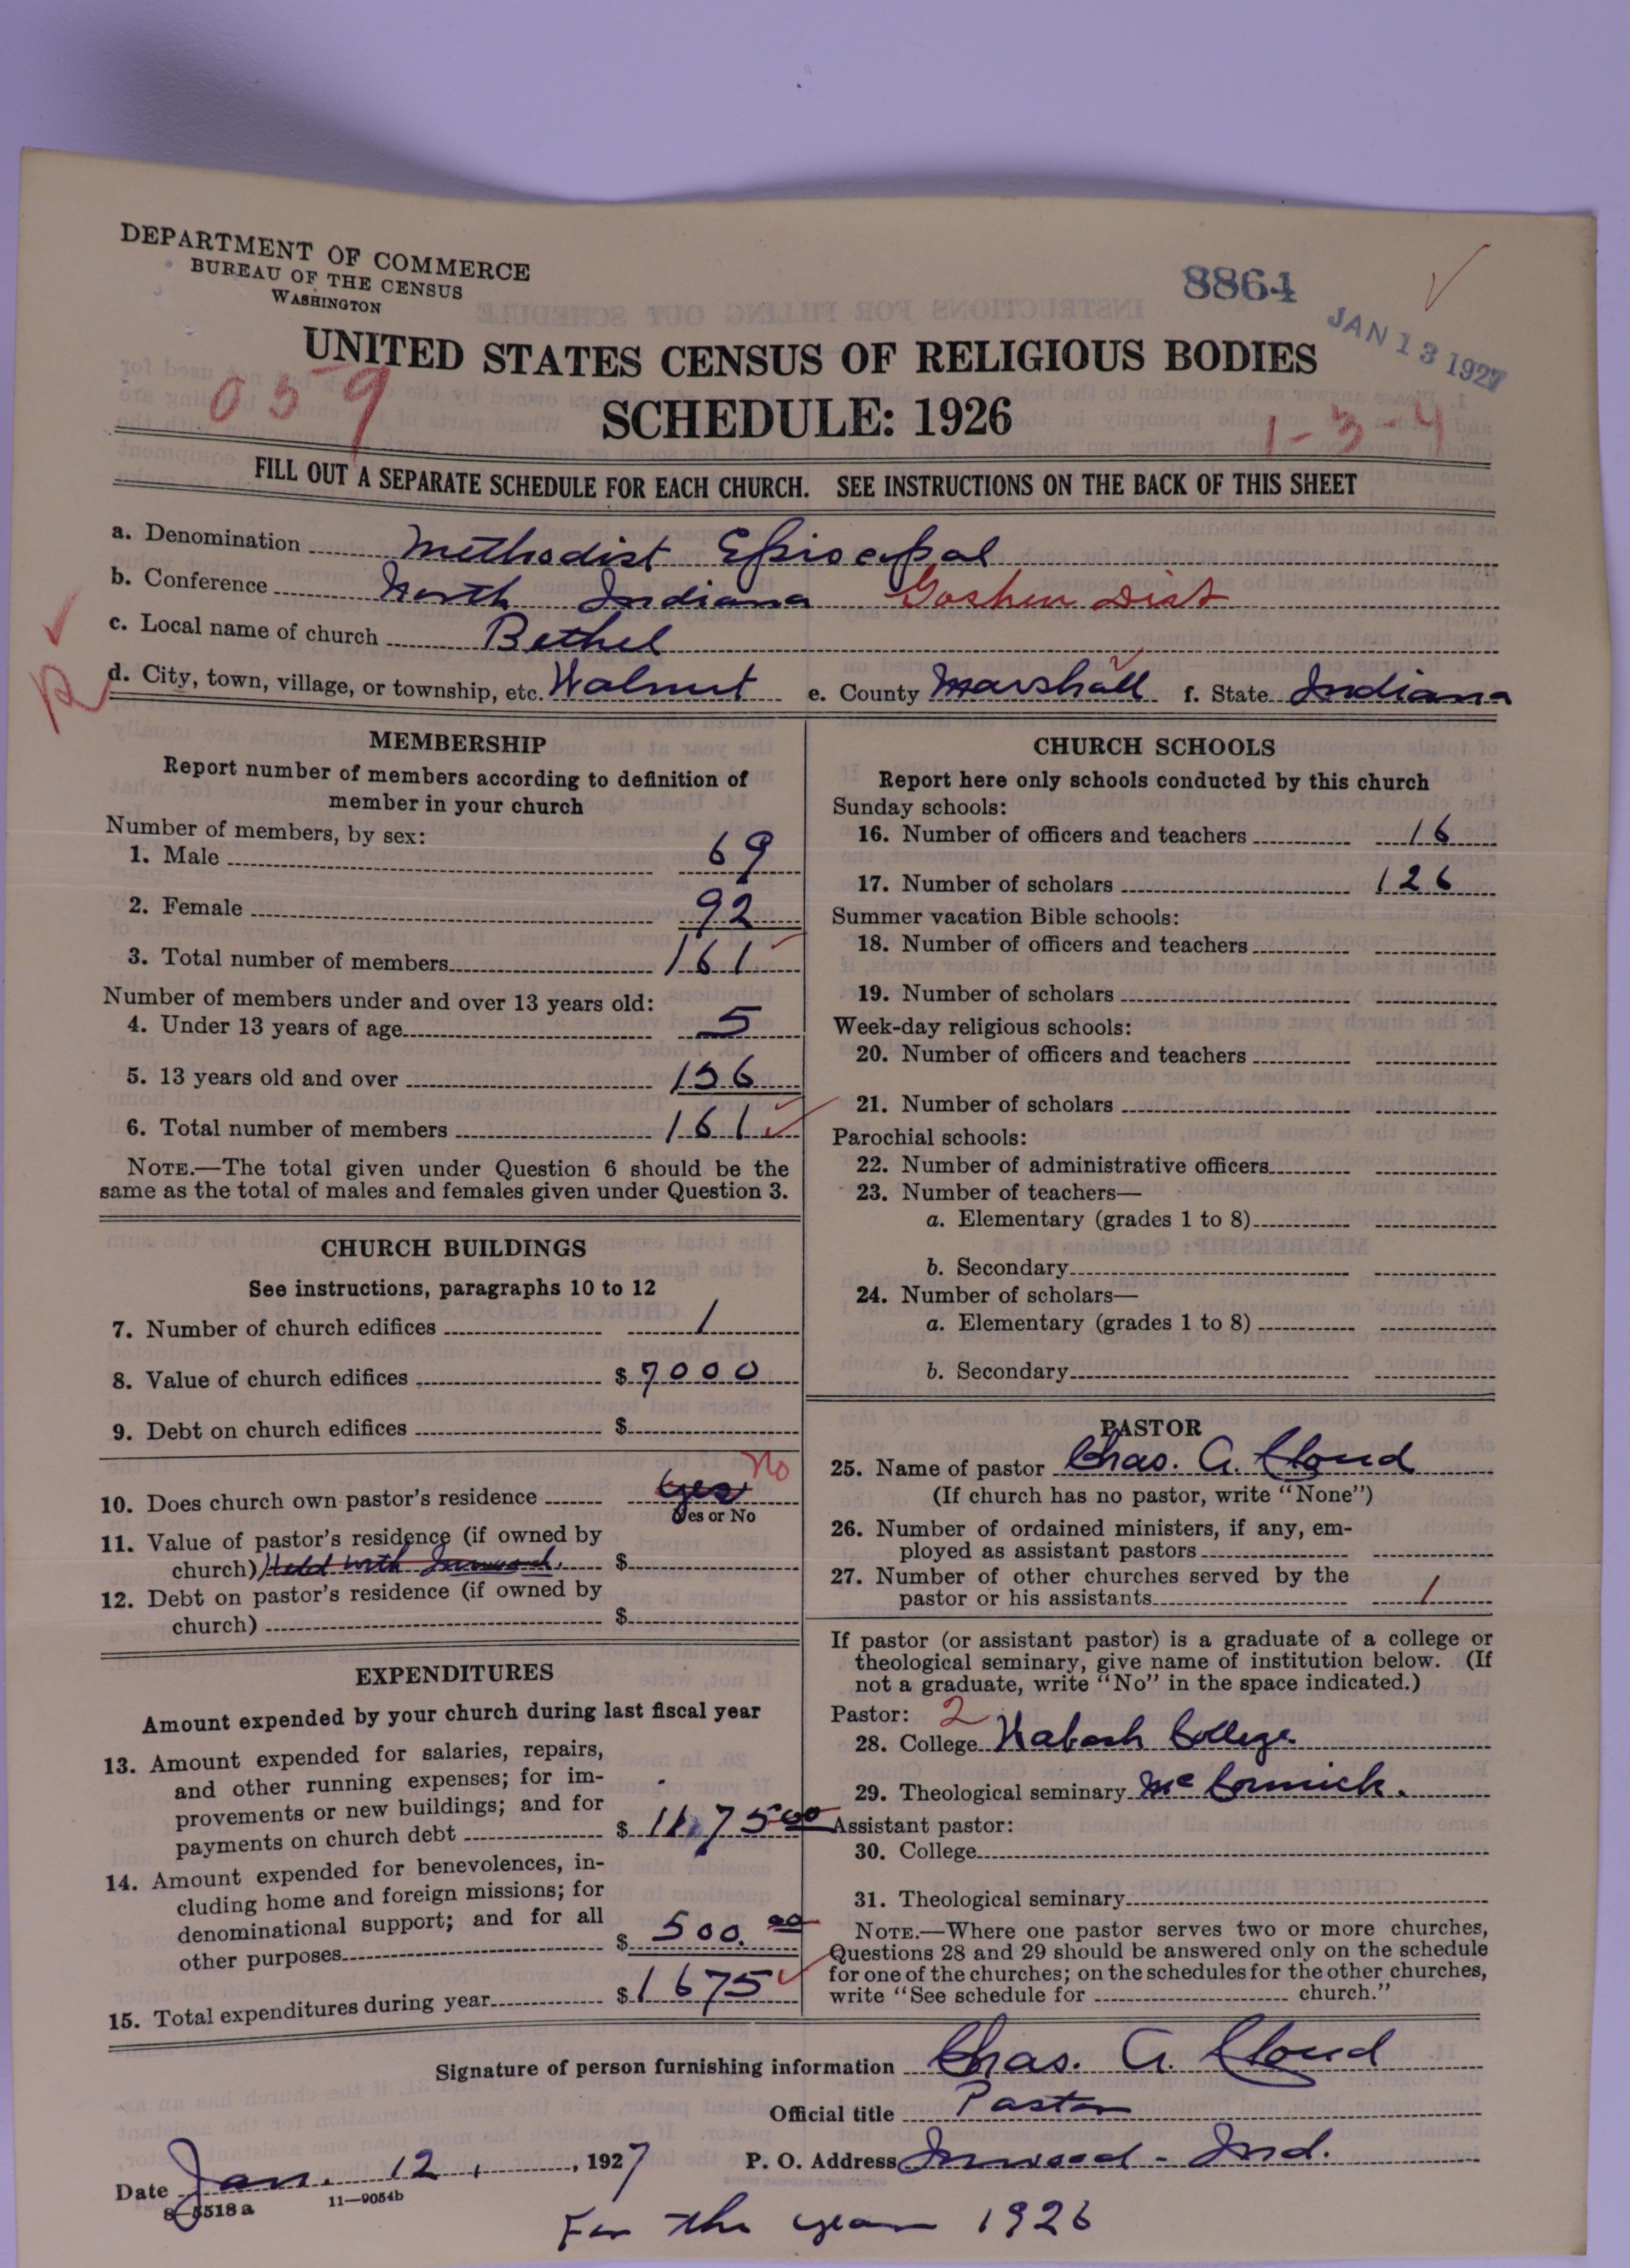 DEPARTMENT OF COMMERCE
BUREAU OF THE CENSUS
WASHINGTON
8864
JAN 13 1927
UNITED STATES CENSUS OF RELIGIOUS BODIES
059
SCHEDULE: 1926
1-3-4
FILL OUT A SEPARATE SCHEDULE FOR EACH CHURCH. SEE INSTRUCTIONS ON THE BACK OF THIS SHEET
a. Denomination Methodist Episcopal
b. Conference North Indiana Goshen Dist
c. Local name of church Bethel
d. City, town, village, or township, etc. Walnut e. County Marshall f. State Indiana
MEMBERSHIP
Report number of members according to definition of
member in your church
Number of members, by sex:
1. Male 69
2. Female 92
3. Total number of members 161
Number of members under and over 13 years old:
4. Under 13 years of age 5
5. 13 years old and over 156
6. Total number of members 161
NOTE.—The total given under Question 6 should be the
same as the total of males and females given under Question 3.
CHURCH BUILDINGS
See instructions, paragraphs 10 to 12
7. Number of church edifices 1
8. Value of church edifices $ 7000
9. Debt on church edifices $
10. Does church own pastor's residence Yes No
Yes or No
11. Value of pastor's residence (if owned by
church) Held with Inwood. $
12. Debt on pastor's residence (if owned by
church) $
EXPENDITURES
Amount expended by your church during last fiscal year
13. Amount expended for salaries, repairs,
and other running expenses; for im-
provements or new buildings; and for
payments on church debt $ 1175 00
14. Amount expended for benevolences, in-
cluding home and foreign missions; for
denominational support; and for all
other purposes $ 500. 00
15. Total expenditures during year $ 1675
CHURCH SCHOOLS
Report here only schools conducted by this church
Sunday schools:
16. Number of officers and teachers 16
17. Number of scholars 126
Summer vacation Bible schools:
18. Number of officers and teachers
19. Number of scholars
Week-day religious schools:
20. Number of officers and teachers
21. Number of scholars
Parochial schools:
22. Number of administrative officers
23. Number of teachers—
a. Elementary (grades 1 to 8)
b. Secondary
24. Number of scholars—
a. Elementary (grades 1 to 8)
b. Secondary
PASTOR
25. Name of pastor Chas. A. Cloud
(If church has no pastor, write "None")
26. Number of ordained ministers, if any, em-
ployed as assistant pastors
27. Number of other churches served by the
pastor or his assistants 1
If pastor (or assistant pastor) is a graduate of a college or
theological seminary, give name of institution below. (If
not a graduate, write "No" in the space indicated.)
Pastor: 2
28. College Wabash College
29. Theological seminary McCormick.
Assistant pastor:
30. College
31. Theological seminary
NOTE.—Where one pastor serves two or more churches,
Questions 28 and 29 should be answered only on the schedule
for one of the churches; on the schedules for the other churches,
write "See schedule for church."
Signature of person furnishing information Chas. A. Cloud
Official title Pastor
Date Jan. 12, 1927 P. O. Address Inwood - Ind.
8-5518a 11—9054b
For the year 1926